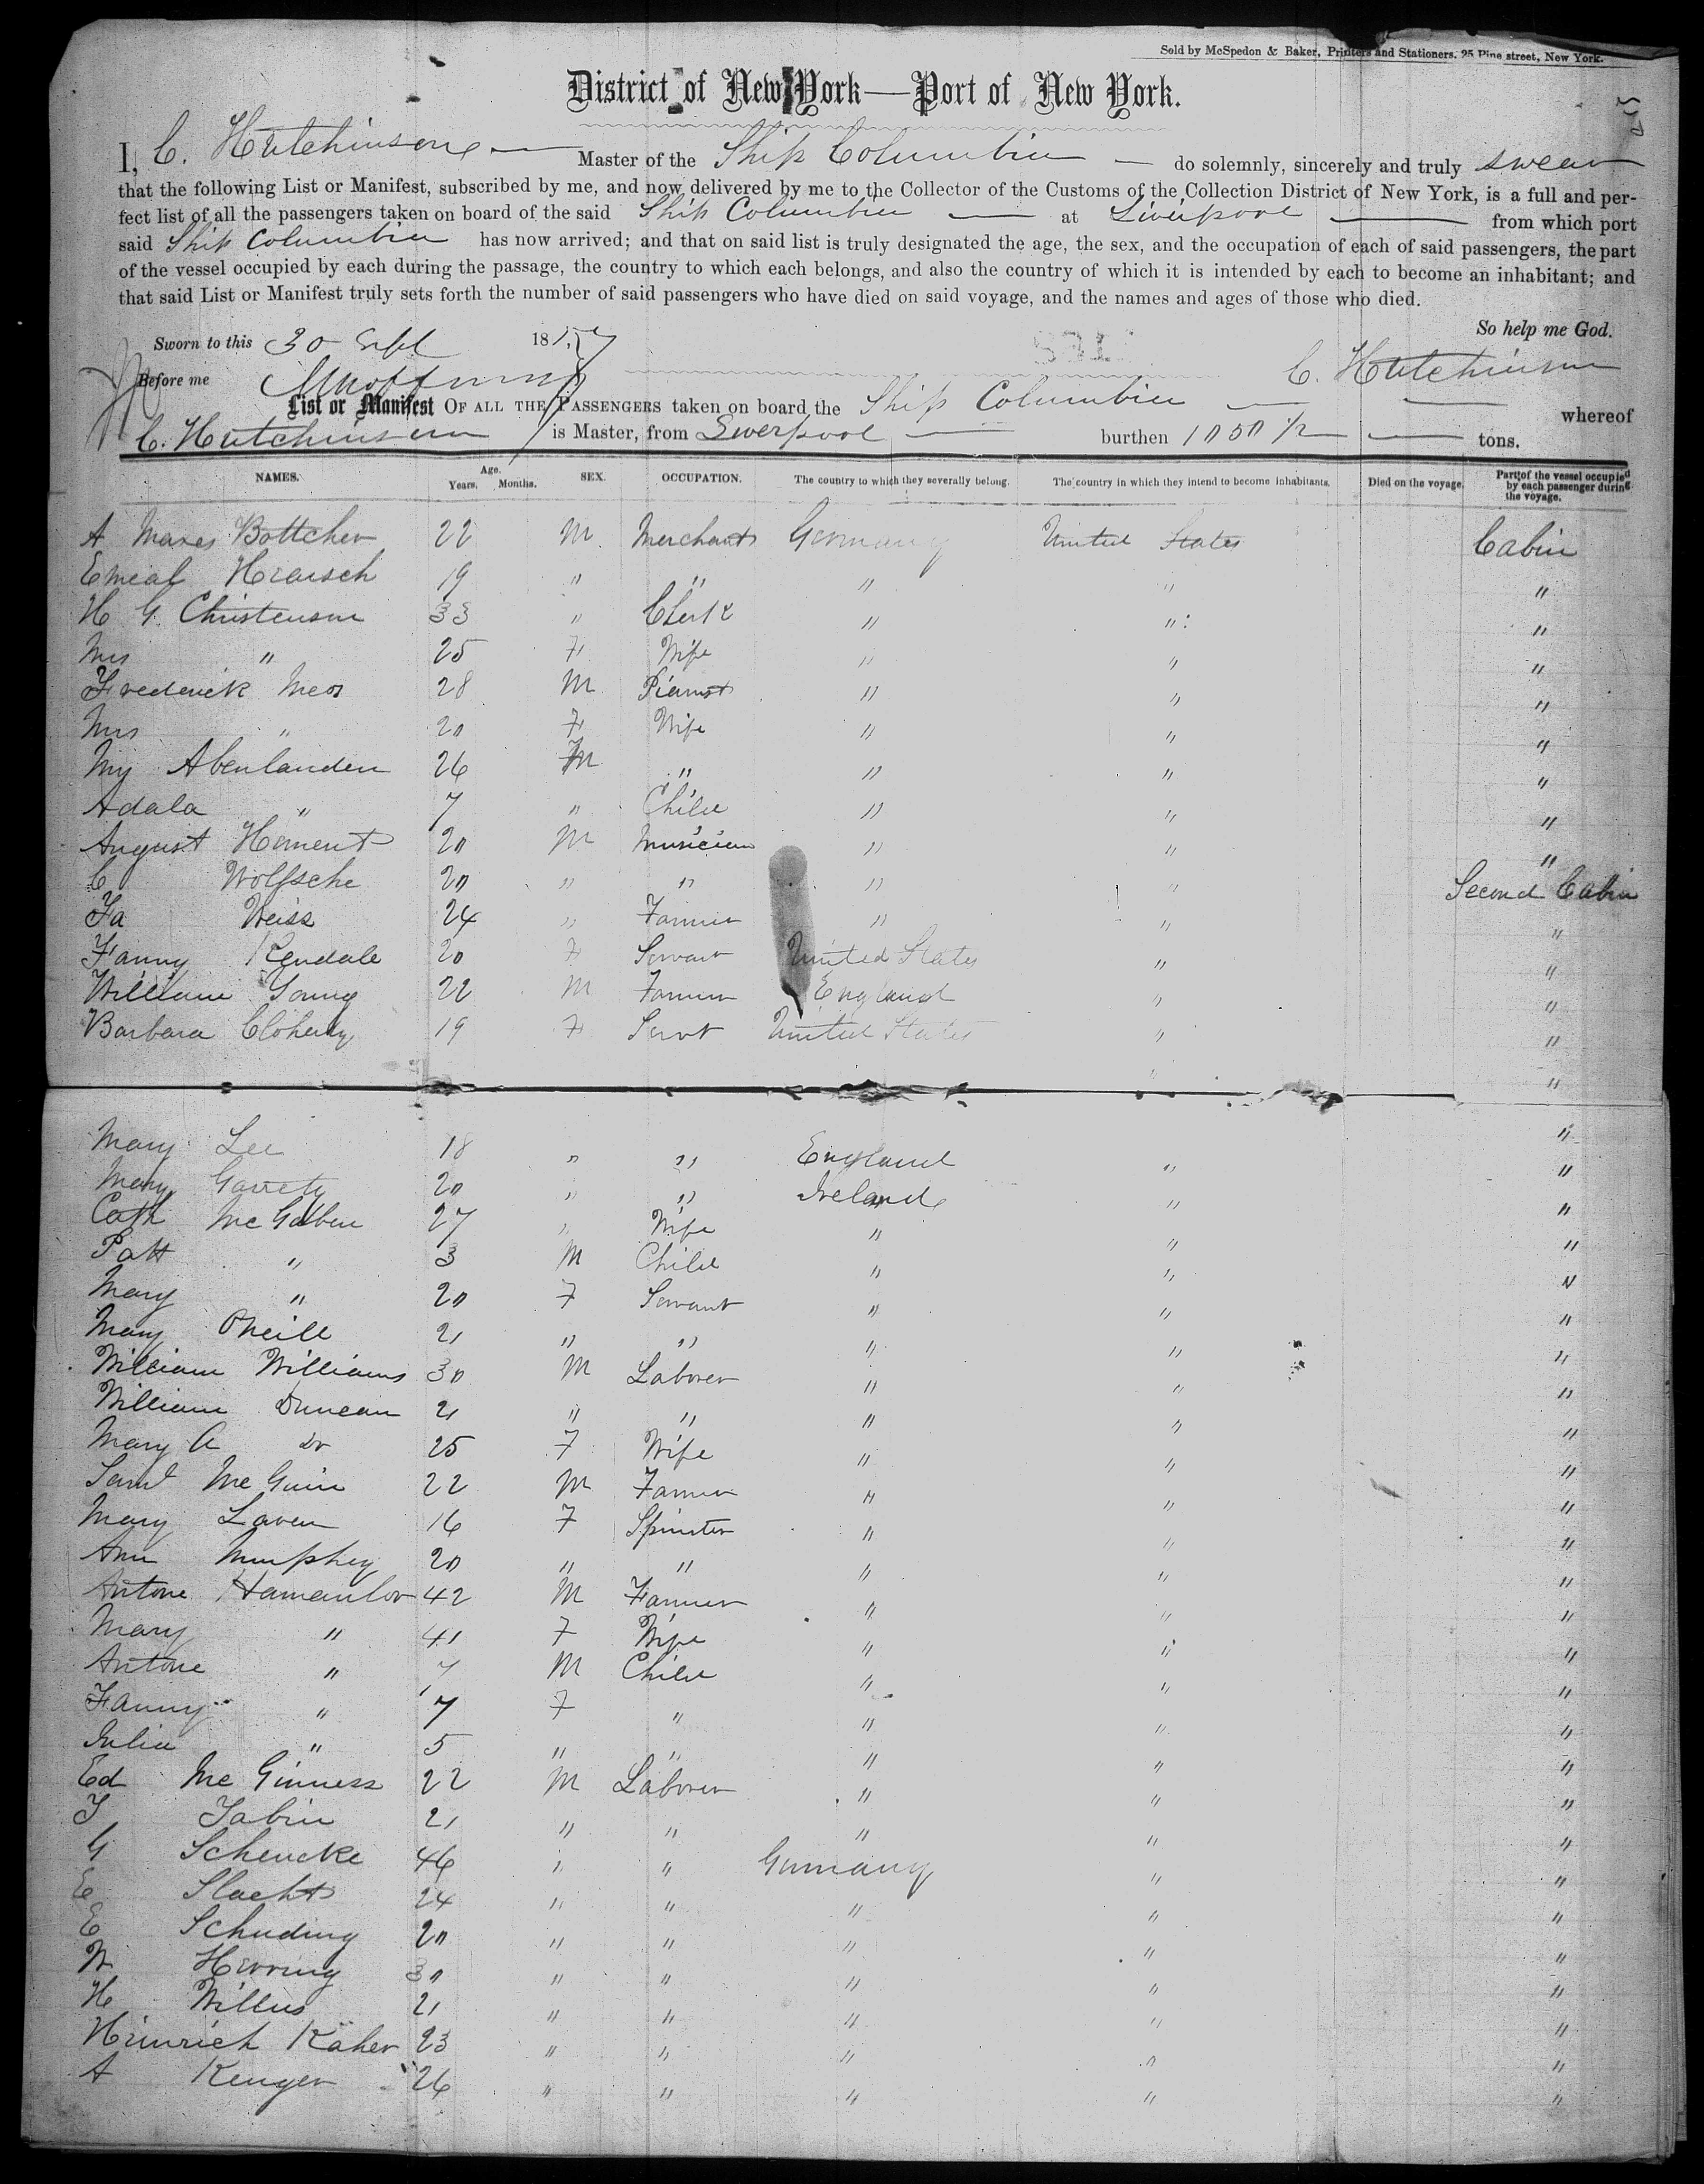 Sold by McSpedon & Baker, Printers and Stationers, 25 Pine street, New York.
District of New York—Port of New York.
I, C. Hutchinson Master of the Ship Columbia do solemnly, sincerely and truly swear
that the following List or Manifest, subscribed by me, and now delivered by me to the Collector of the Customs of the Collection District of New York, is a full and per-
fect list of all the passengers taken on board of the said Ship Columbia at Liverpool from which port
said Ship Columbia has now arrived; and that on said list is truly designated the age, the sex, and the occupation of each of said passengers, the part
of the vessel occupied by each during the passage, the country to which each belongs, and also the country of which it is intended by each to become an inhabitant; and
that said List or Manifest truly sets forth the number of said passengers who have died on said voyage, and the names and ages of those who died.
So help me God.
Sworn to this 30 Sept 1857
Before me C. Hutchinson
List or Manifest OF ALL THE PASSENGERS taken on board the Ship Columbia whereof
C. Hutchinson is Master, from Liverpool burthen 1050 ½ tons.
NAMES. Age. Years. Months. SEX. OCCUPATION. The country to which they severally belong. The country in which they intend to become inhabitants. Died on the voyage. Part of the vessel occupied by each passenger during the voyage.
A Maxes Bottcher 22 M Merchant Germany United States Cabin
Emeal 19 " " " " "
H G. Christenson 33 " Clerk " " "
Mrs " 25 F Wife " " "
Frederick Meos 28 M Pianist " " "
Mrs " 20 F Wife " " "
My Abenlanden 26 " " " "
Adala " 7 " Child " " "
August Hement 20 M Musician " " "
C Wolfsche 20 " " " " Second Cabin
Fa Weiss 24 " Farmer " " "
Fanny Kendale 20 F Servant United States " "
William Young 22 M Farmer England " "
Barbara Cloherty 19 F Servt United States " "
" "
Mary Lee 18 " " England " "
Mary Garrety 20 " " Ireland " "
Cath McGibben 27 " Wife " " "
Patt " 3 M Child " " "
Mary " 20 F Servant " " "
Mary Oneill 21 " " " " "
William Williams 30 M Laborer " " "
William Duncan 21 " " " " "
Mary A Do 25 F Wife " " "
Saml McGuin 22 M Farmer " " "
Mary Laven 16 F Spinster " " "
Ann Murphey 20 " " " " "
Antone Hamanlov 42 M Farmer " " "
Mary " 41 F Wife " " "
Antone " 7 M Child " " "
Fanny " 7 F " " " "
Julia " 5 " " " " "
Ed McGinness 22 M Laborer " " "
J Tabin 21 " " " " "
G Schencke 46 " " Germany " "
E Slacht 24 " " " " "
E Schuding 20 " " " " "
W Herring 30 " " " " "
H Willus 21 " " " " "
Hinrich Kaher 23 " " " " "
A Kenger 26 " " " " "